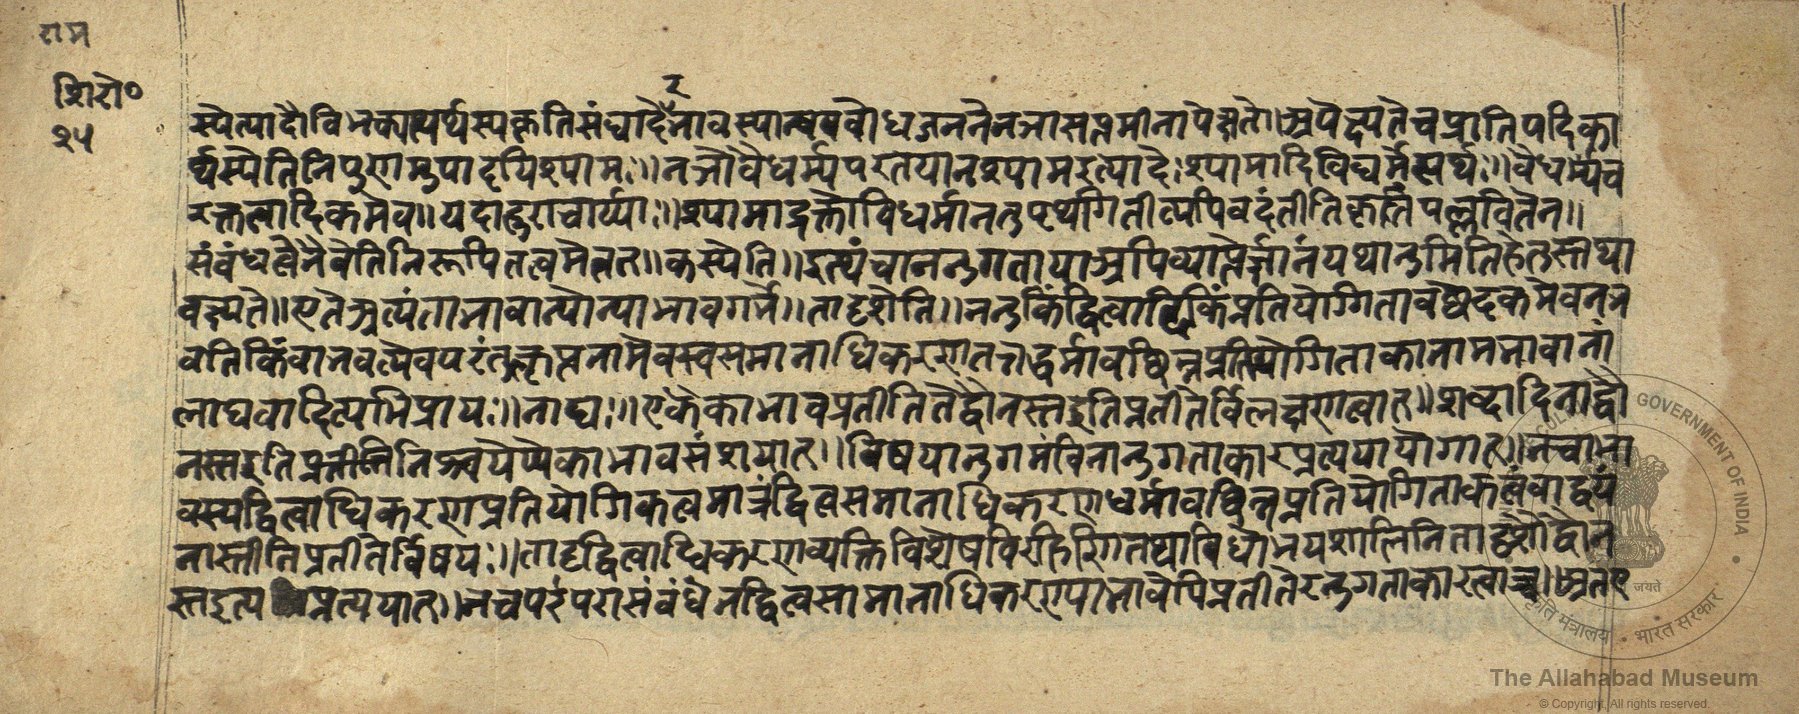 राम
शिरो०
२५
र
स्पेत्यादौ विभक्त्यात्यर्थस्य प्रकृतिसंख्यादेर्नावस्यान्वयबोधजननेनआसत्तमीनापेक्षते॥अपेक्ष्यतेचप्रातिपदिका
र्थस्येतिनिपुणमुपादृयिश्यामः॥नञौवैधर्म्यपरतेयानश्यामइत्यादेःश्यामादिविधर्मेत्यर्थः॥वैधर्म्यंच
रक्तत्वादिकमेव॥यदाहुराचार्य्याः॥श्यामाद्रक्तोविधर्मानतुपृथगितीत्यपिवदंतीतिकृतंपल्लवितेन॥
संबंधत्वेनैवेतिनिरूपिततत्वमेतत्॥कस्येति॥इत्थंचाननुगतायाअपिव्याप्तेर्ज्ञानंयथानुमितिहेतुस्तथा
वक्ष्यते॥एतेअत्यंताभावान्योन्याभावगर्भे॥तादृशेति॥ननुकिंद्वित्वादिकंप्रतियोगितावच्छेदकमेवनभ
वतिकिंवाभवत्येवपरंतुक्लृप्तनामेवस्वसमानाधिकरणतत्तद्धर्मावच्छिन्नप्रतियोगिताकानामभावानां
लाघवादित्यभिप्रायः॥नाद्यः॥एकैकाभावप्रतीतितोद्वौनस्तइतिप्रतीतेर्विलक्षणत्वात्॥शब्दादिनाद्वौ
नस्तइतिप्रतीतिनिश्चयेप्येकाभावसंशयात्॥विषयानुगमंविनानुगताकारप्रत्ययायोगात्॥नचाभा
वस्यद्वित्वाधिकरणप्रतियोगिकत्वमात्रंद्वित्वसमानाधिकरणधर्मावच्छिन्नप्रतियोगिताकत्वंवाद्वयं
नास्तीतिप्रतीतेर्विषयः॥तादृद्वित्वाधिकरणव्यक्तिविशेषविरहिणितथाविधोभयशालिनितादृशौद्वौन
स्तइत्यप्रत्ययात्॥नचपरंपरासंबंधेनद्वित्वसामानाधिकरण्याभावेपिप्रतीतेरनुगताकारत्वाच्च॥अतए
The Allahabad Museum
© Copyright, All rights reserved.
GOVERNMENT OF INDIA
भारत सरकार